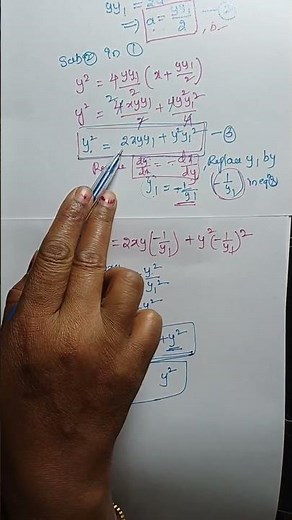 yy₁ =
⇒ a = yy₁/2 — ②
Sub ② in ①
y² = 4 yy₁/2 (x + yy₁/2)
y² = 4xyy₁/2 + 4y²y₁²/4
y² = 2xyy₁ + y²y₁² — ③
Replace dy/dx = -dx/dy, Replace y₁ by
y₁ = -1/y₁ (-1/y₁) in eq ③
= 2xy(-1/y₁) + y²(-1/y₁)²
y²/y₁²
y²
+y²
y²